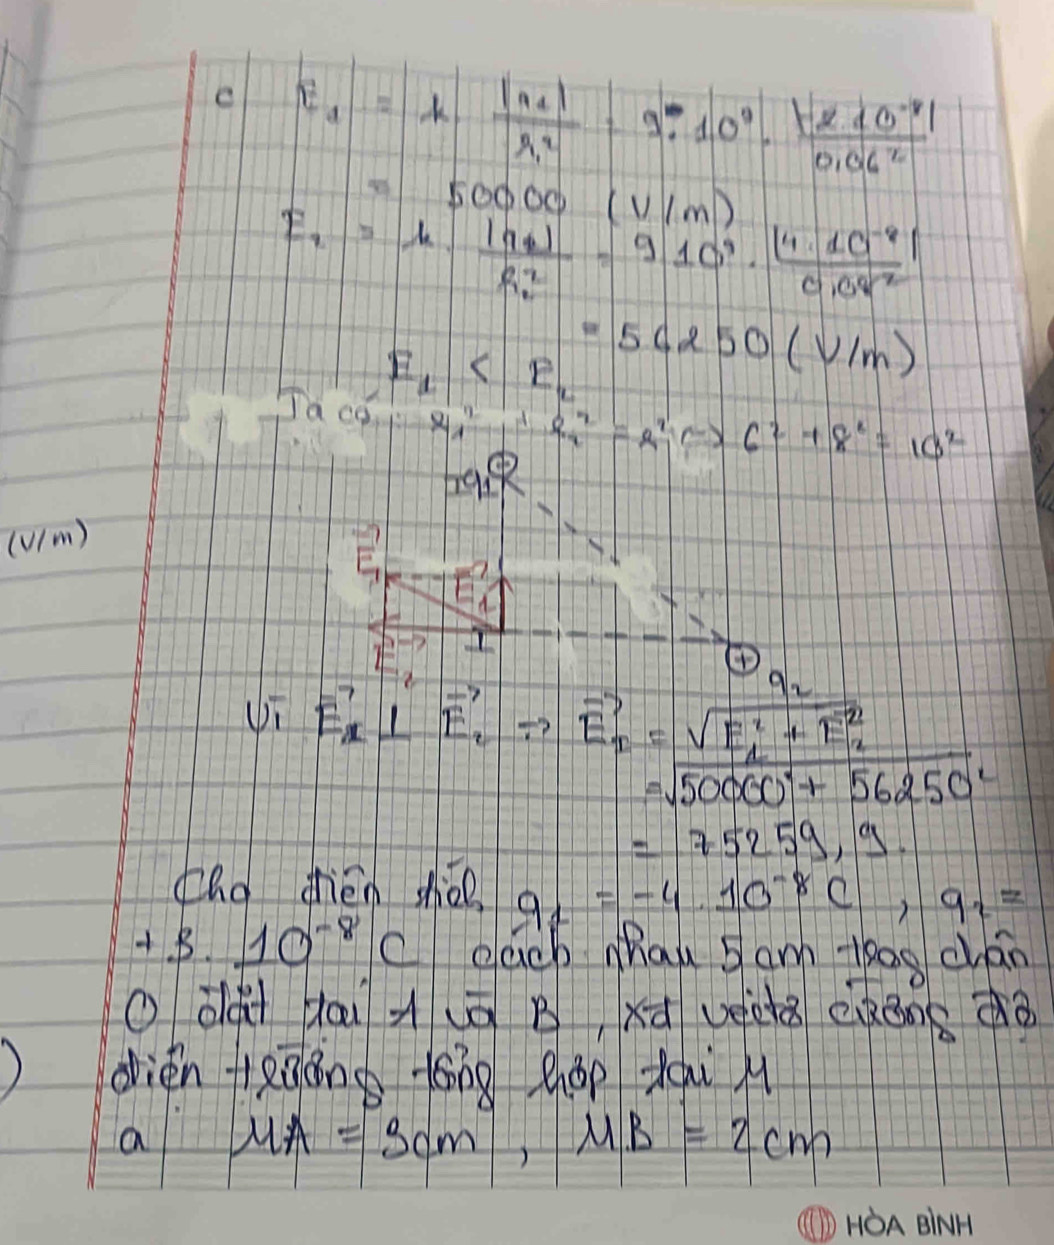 c E₁ = k |q₁| / r₁² = 9.10⁹. |2.10⁻⁸| / 0,06²
= 50000 (V/m)
E₂ = k. |q₂| / r₂² = 9 10⁹. |4.10⁻⁸| / 0,08²
= 56250 (V/m)
E₁ < E₂
Ta có: r₁² + r₂² = r² <-> 6² + 8² = 10²
q₁
(V/m)
E⃗
E⃗₁
I
E⃗₂
q₂
Vì E⃗₁ ⊥ E⃗₂ => E⃗ = √E₁² + E₂²
= √50000² + 56250²
= 75259,9.
Cho điện tích q₁ = -4.10⁻⁸ C, q₂ =
+8.10⁻⁸ C cách nhau 5 cm trog chân
O đặt tại A và B, xđ véctơ cường độ
điện trường tổng hợp tại M
a MA = 3cm, MB = 2cm
HÒA BÌNH